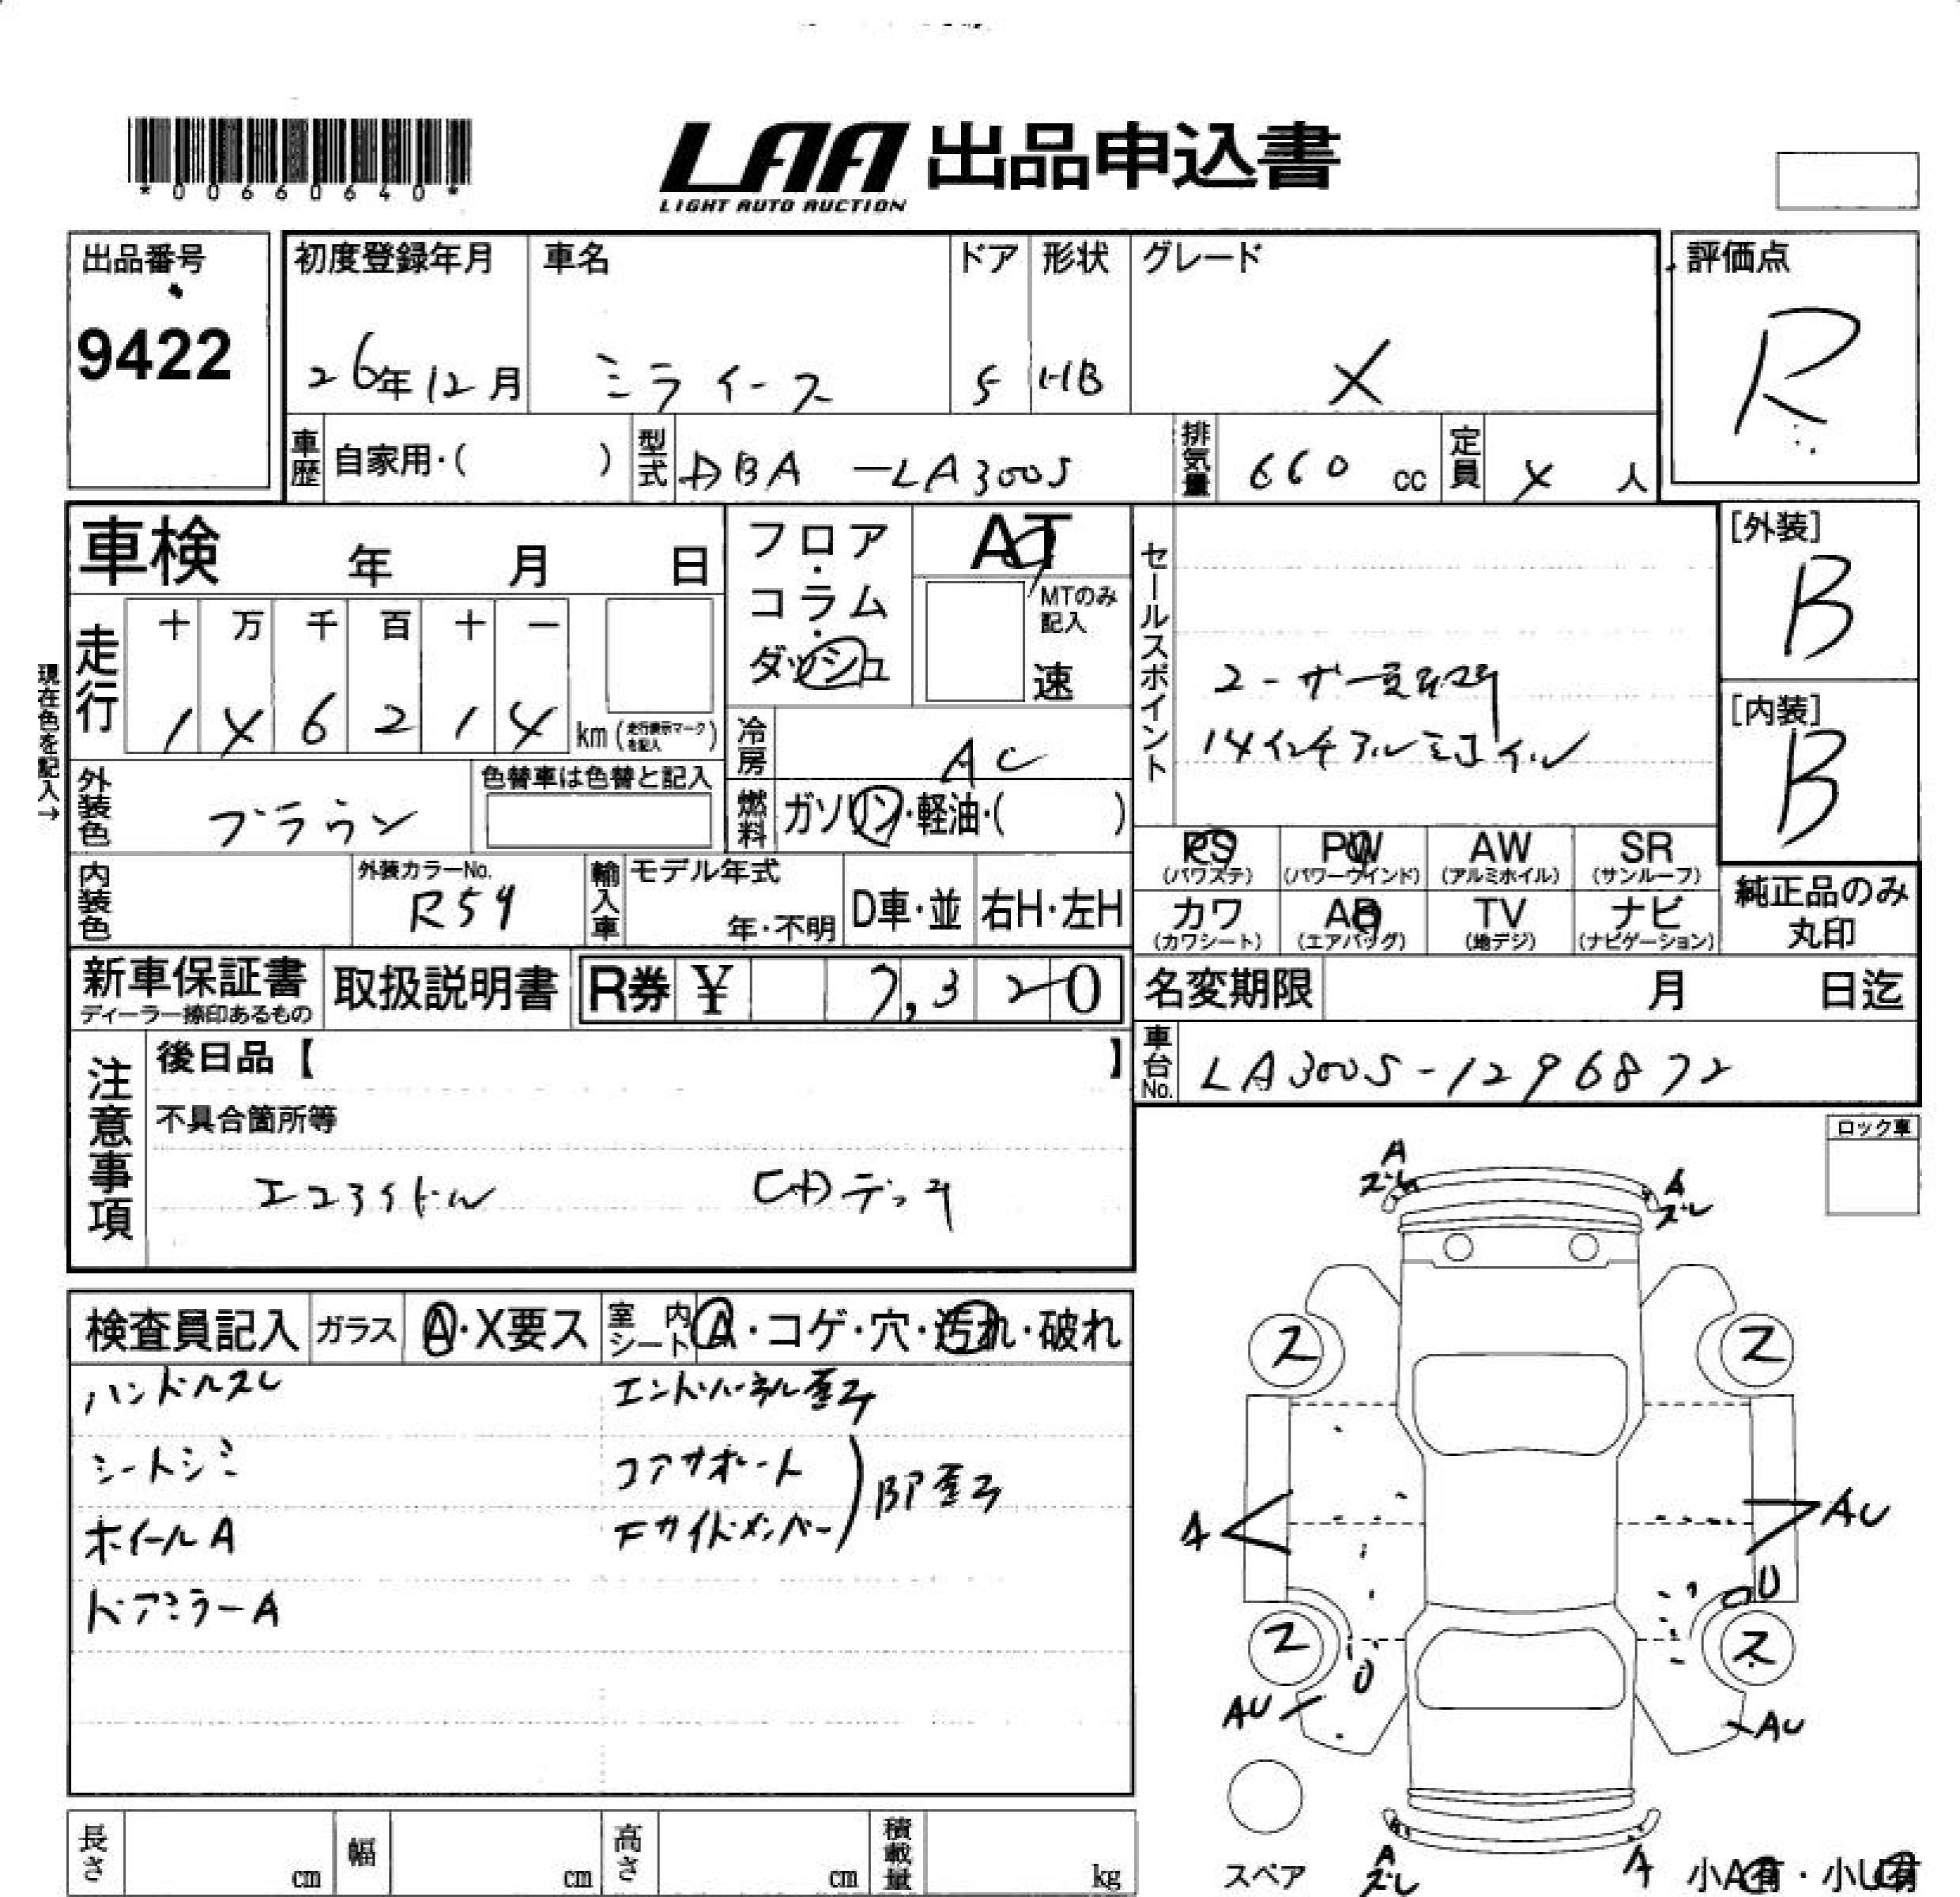 *00660640*
LAA 出品申込書
LIGHT AUTO AUCTION
出品番号
9422
初度登録年月
26年12月
車名
ミライース
ドア
5
形状
HB
グレード
X
評価点
R
車歴
自家用・( )
型式
DBA -LA300S
排気量
660 cc
定員
4 人
車検 年 月 日
現在色を記入→
走行
十 万 千 百 十 一
1 4 6 2 1 4 km(走行表示マークを記入)
フロア・コラム・ダッシュ
AT
MTのみ記入
速
冷房
AC
燃料
ガソリン・軽油・( )
外装色
ブラウン
色替車は色替と記入
内装色
外装カラーNo.
R59
輸入車
モデル年式
年・不明
D車・並
右H・左H
セールスポイント
14インチアルミホイル
[外装]
B
[内装]
B
PS
(パワステ)
PW
(パワーウインド)
AW
(アルミホイル)
SR
(サンルーフ)
カワ
(カワシート)
AB
(エアバッグ)
TV
(地デジ)
ナビ
(ナビゲーション)
純正品のみ
丸印
新車保証書
ディーラー捺印あるもの
取扱説明書
R券 ¥ 7,320
名変期限 月 日迄
車台No.
LA300S-1296872
注意事項
後日品【 】
不具合箇所等
エコアイドル CDデッキ
ロック車
検査員記入
ガラス
A・X要ス
室内シート
A・コゲ・穴・汚れ・破れ
ハンドルスレ
シートシミ
ホイールA
ドアミラーA
エンドパネル歪み
コアサポート
Fサイドメンバー
BP歪み
A
スレ
A
スレ
ス
ス
A
AU
U
ス
ス
U
AU
AU
スペア
A
スレ
A
小A有・小U有
長さ cm
幅 cm
高さ cm
積載量 kg